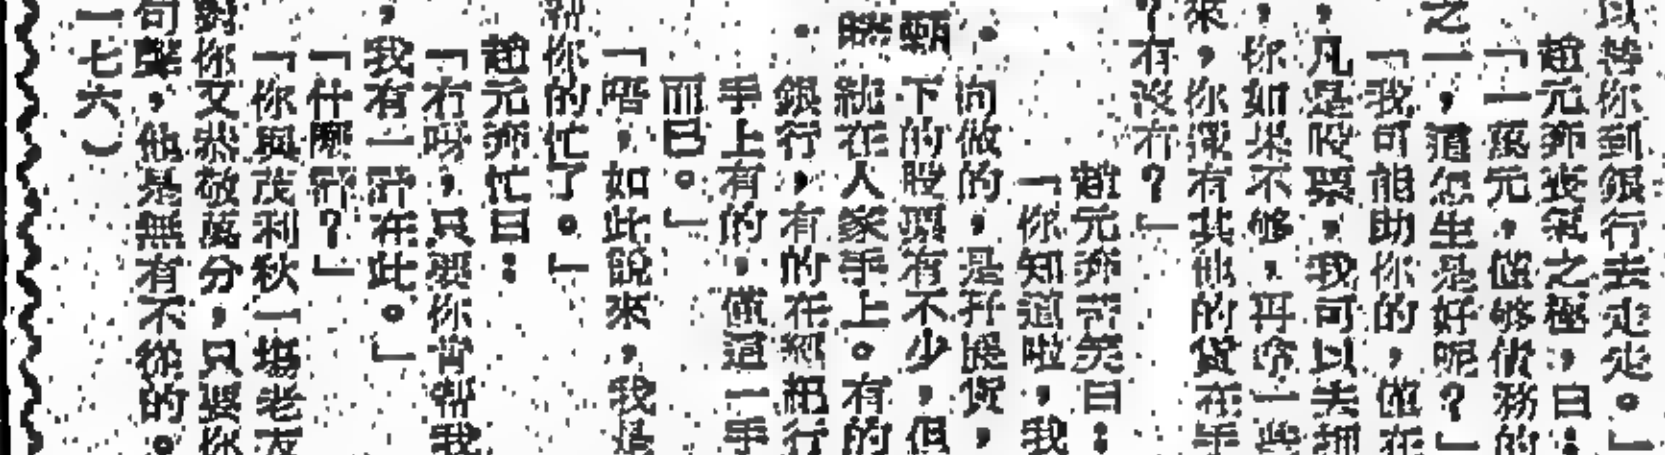 以等你到銀行去走走。」
趙元弈喪氣之極，曰：
「一萬元，僅够債務的
之一，這怎生是好呢？」
「我可能助你的，僅在
，凡是股票，我可以去押
，你如果不够，再 一些
來，你還有其他的貨在手
？有沒有？」
趙元弈苦笑曰：
「你知道啦，我
。向做的，是孖 貨，
下的股 有不少，但
就在人家手上。有的
。銀行，有的在 行
手上有的，僅這一手
而已。」
「唔，如此說來，我是
你的忙了。」
趙元弈忙曰：
「有呀，只要你肯幫我
，我有一計在此。」
「什麼計？」
「你與茂利秋一塲老友
對你又恭敬萬分，只要你
句聲，他是無有不從的。
一七六）